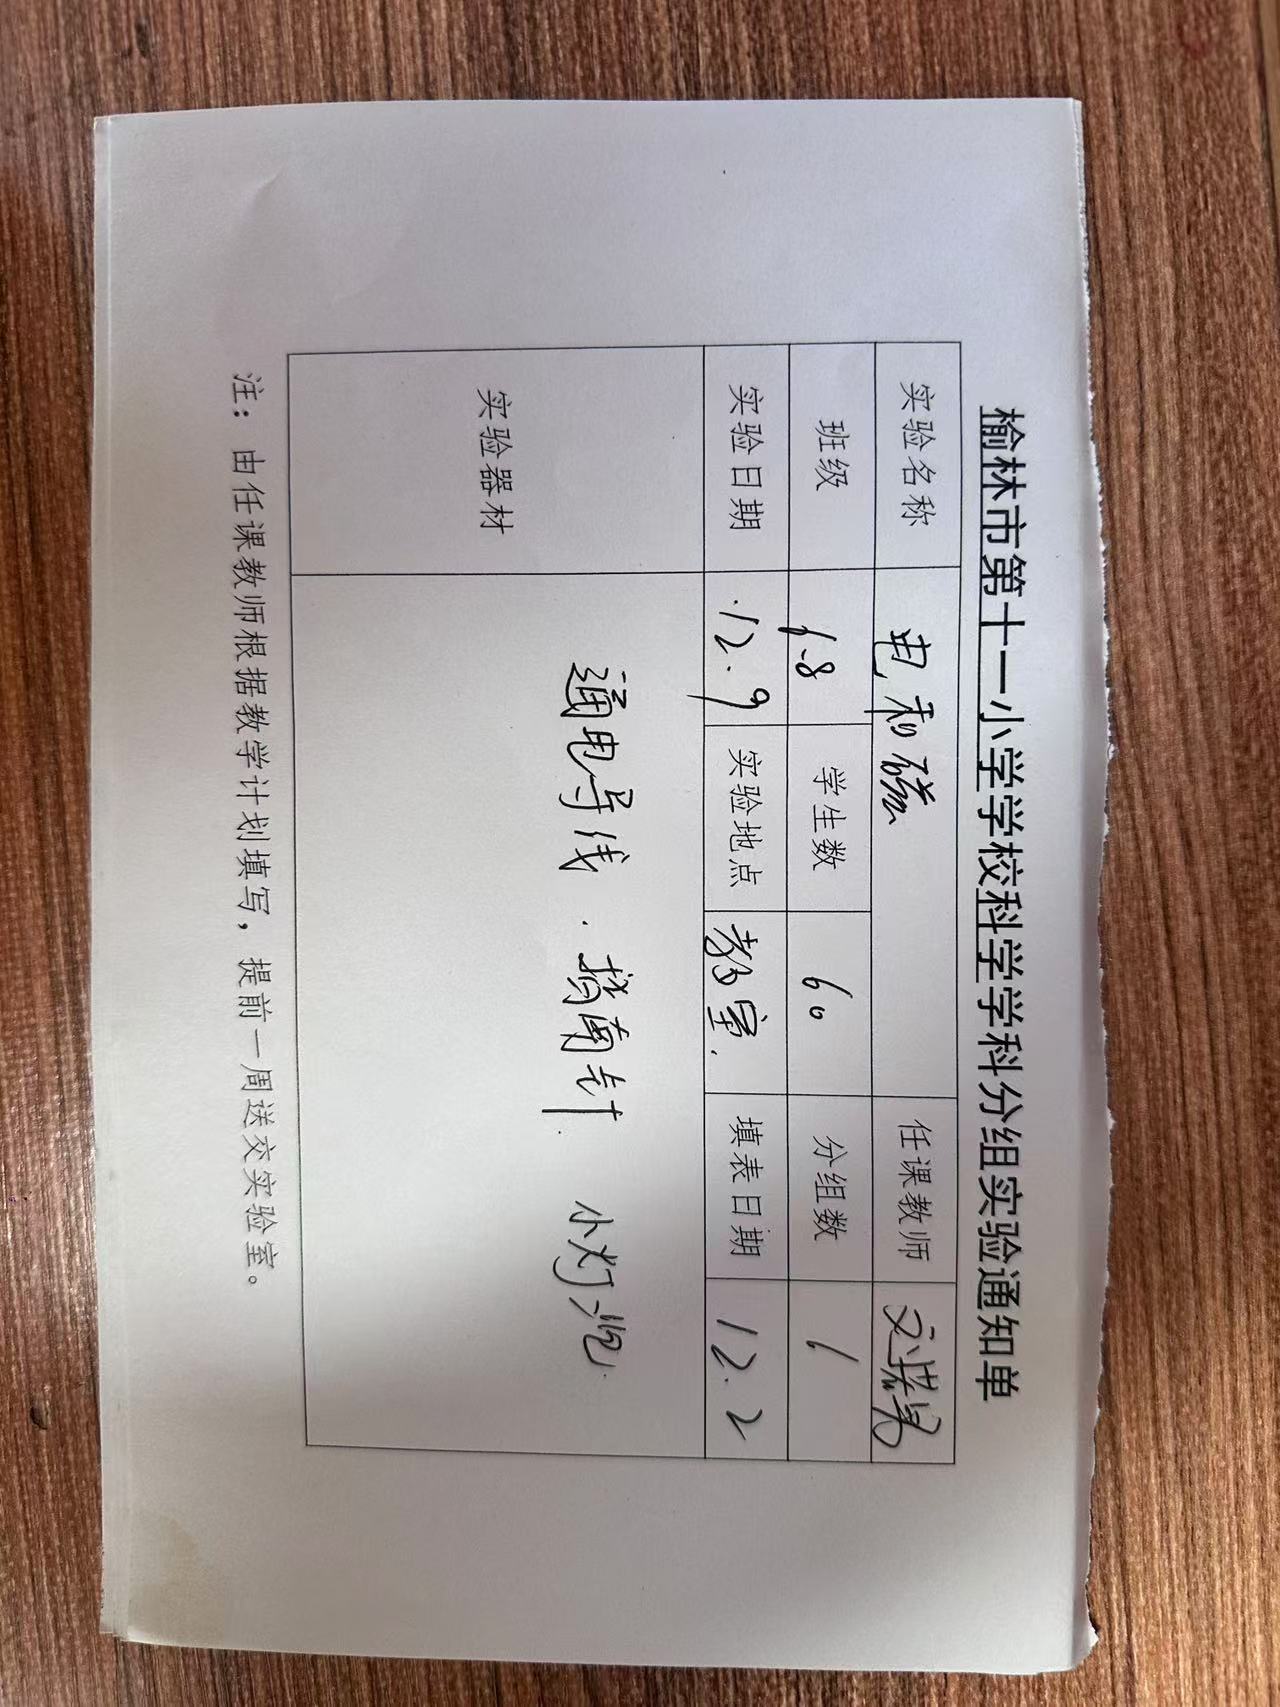 榆林市第十一小学学校科学学科分组实验通知单
实验名称 电和磁 任课教师
班级 6.8 学生数 60 分组数 1
实验日期 12.9 实验地点 教室. 填表日期 12.2
实验器材 通电导线. 指南针. 小灯泡.
注：由任课教师根据教学计划填写，提前一周送交实验室。